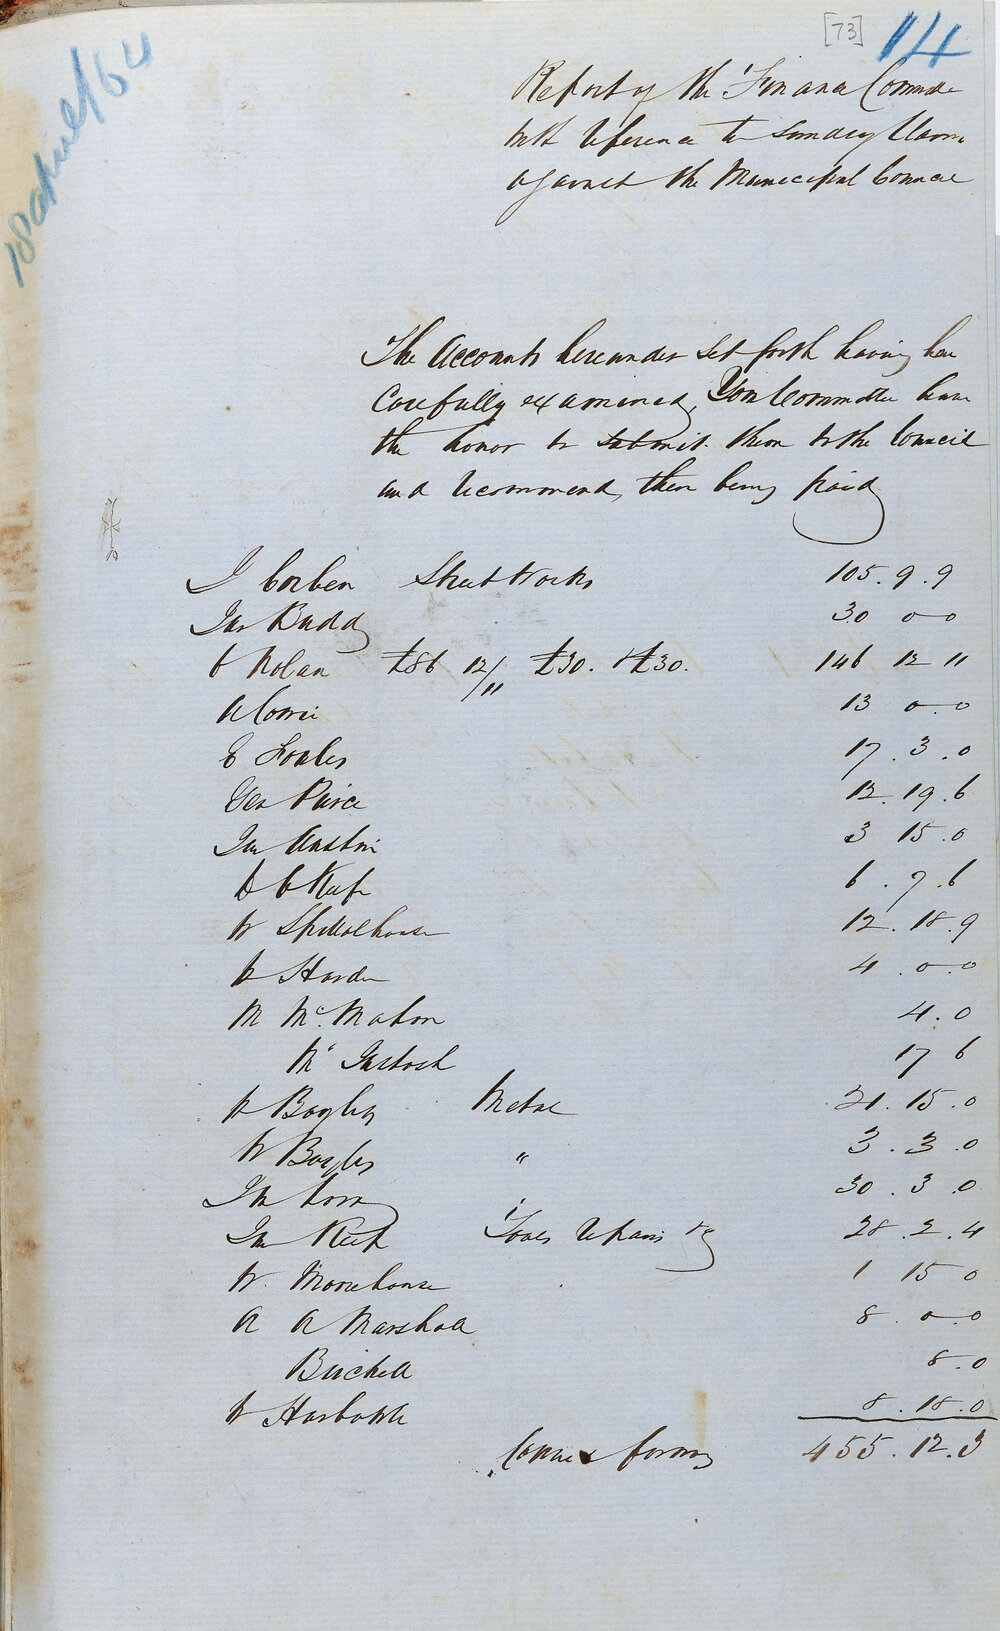 [73] 14
18 april/64
Report of the Finance Committee
with reference to Sundry Claims
against the Municipal Council
The Accounts hereunder set forth having been
Carefully examined, Your Committee have
the honor to submit them to the Council
and recommend their being paid
J Corben Street Works 105. 9. 9
Jas Budd 30 0 0
Nolan £86 12/11 £30. & £30. 146 12 11
A Cowie 13 0. 0
E Foales 17. 3. 0
Geo Peirce 12. 19. 6
Jn Austin 3 15. 0
D O Keefe 6. 7. 6
W Spittlehouse 12. 18. 9
W Harden 4. 0. 0
M McMahon 4. 0
McIntosh 17 6
W Bayley Metal 21. 15. 0
W Bayley " 3. 3. 0
Jn 30. 3. 0
Jn Keep Tools Repairs &c 28. 2. 4
W. Moorehouse 1 15 0
A A Marshall 8. 0. 0
Birchell 8. 0
W Harbottle 8. 18. 0
Carried forward 455. 12. 3